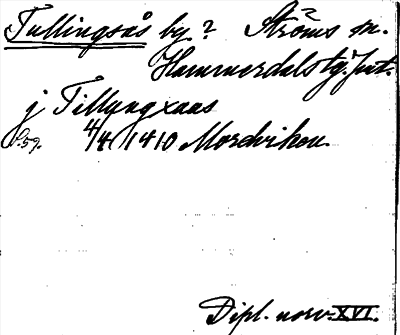 Tullingsås by? Ströms sn.
Hammerdals tg. Jmt.
j Tillyngxaas
s. 59. 4/4 1410 Mordviken.
Dipl. norv. XVI.